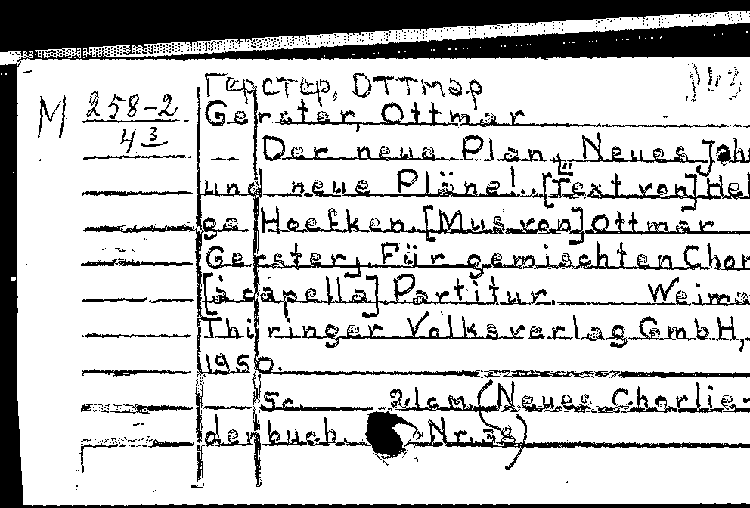 Герстер, Оттмар
M 258-2
4 3
Gerster, Ottmar
Der neue Plan, Neues Jahr
und neue Pläne!..[Text von] Hel
ga Hoefken. [Mus. von] Ottmar
Gerster, Für gemischten Chor
[a capella] Partitur. Weima
Thüringer Volksverlag GmbH,
1950.
5c. 21cm (Neues Chorlie-
derbuch. Nr. 38)